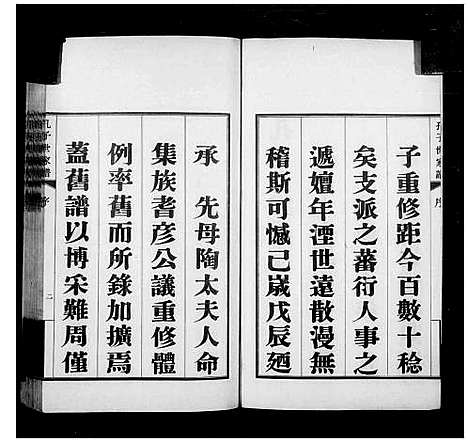 孔子世家譜 序
子重修距今百數十稔
矣支派之蕃衍人事之
遞嬗年湮世遠散漫無
稽斯可憾已歲戊辰廼
承 先母陶太夫人命
集族耆彥公議重修體
例率舊而所錄加擴焉
蓋舊譜以博采難周僅
孔子世家譜 序 二